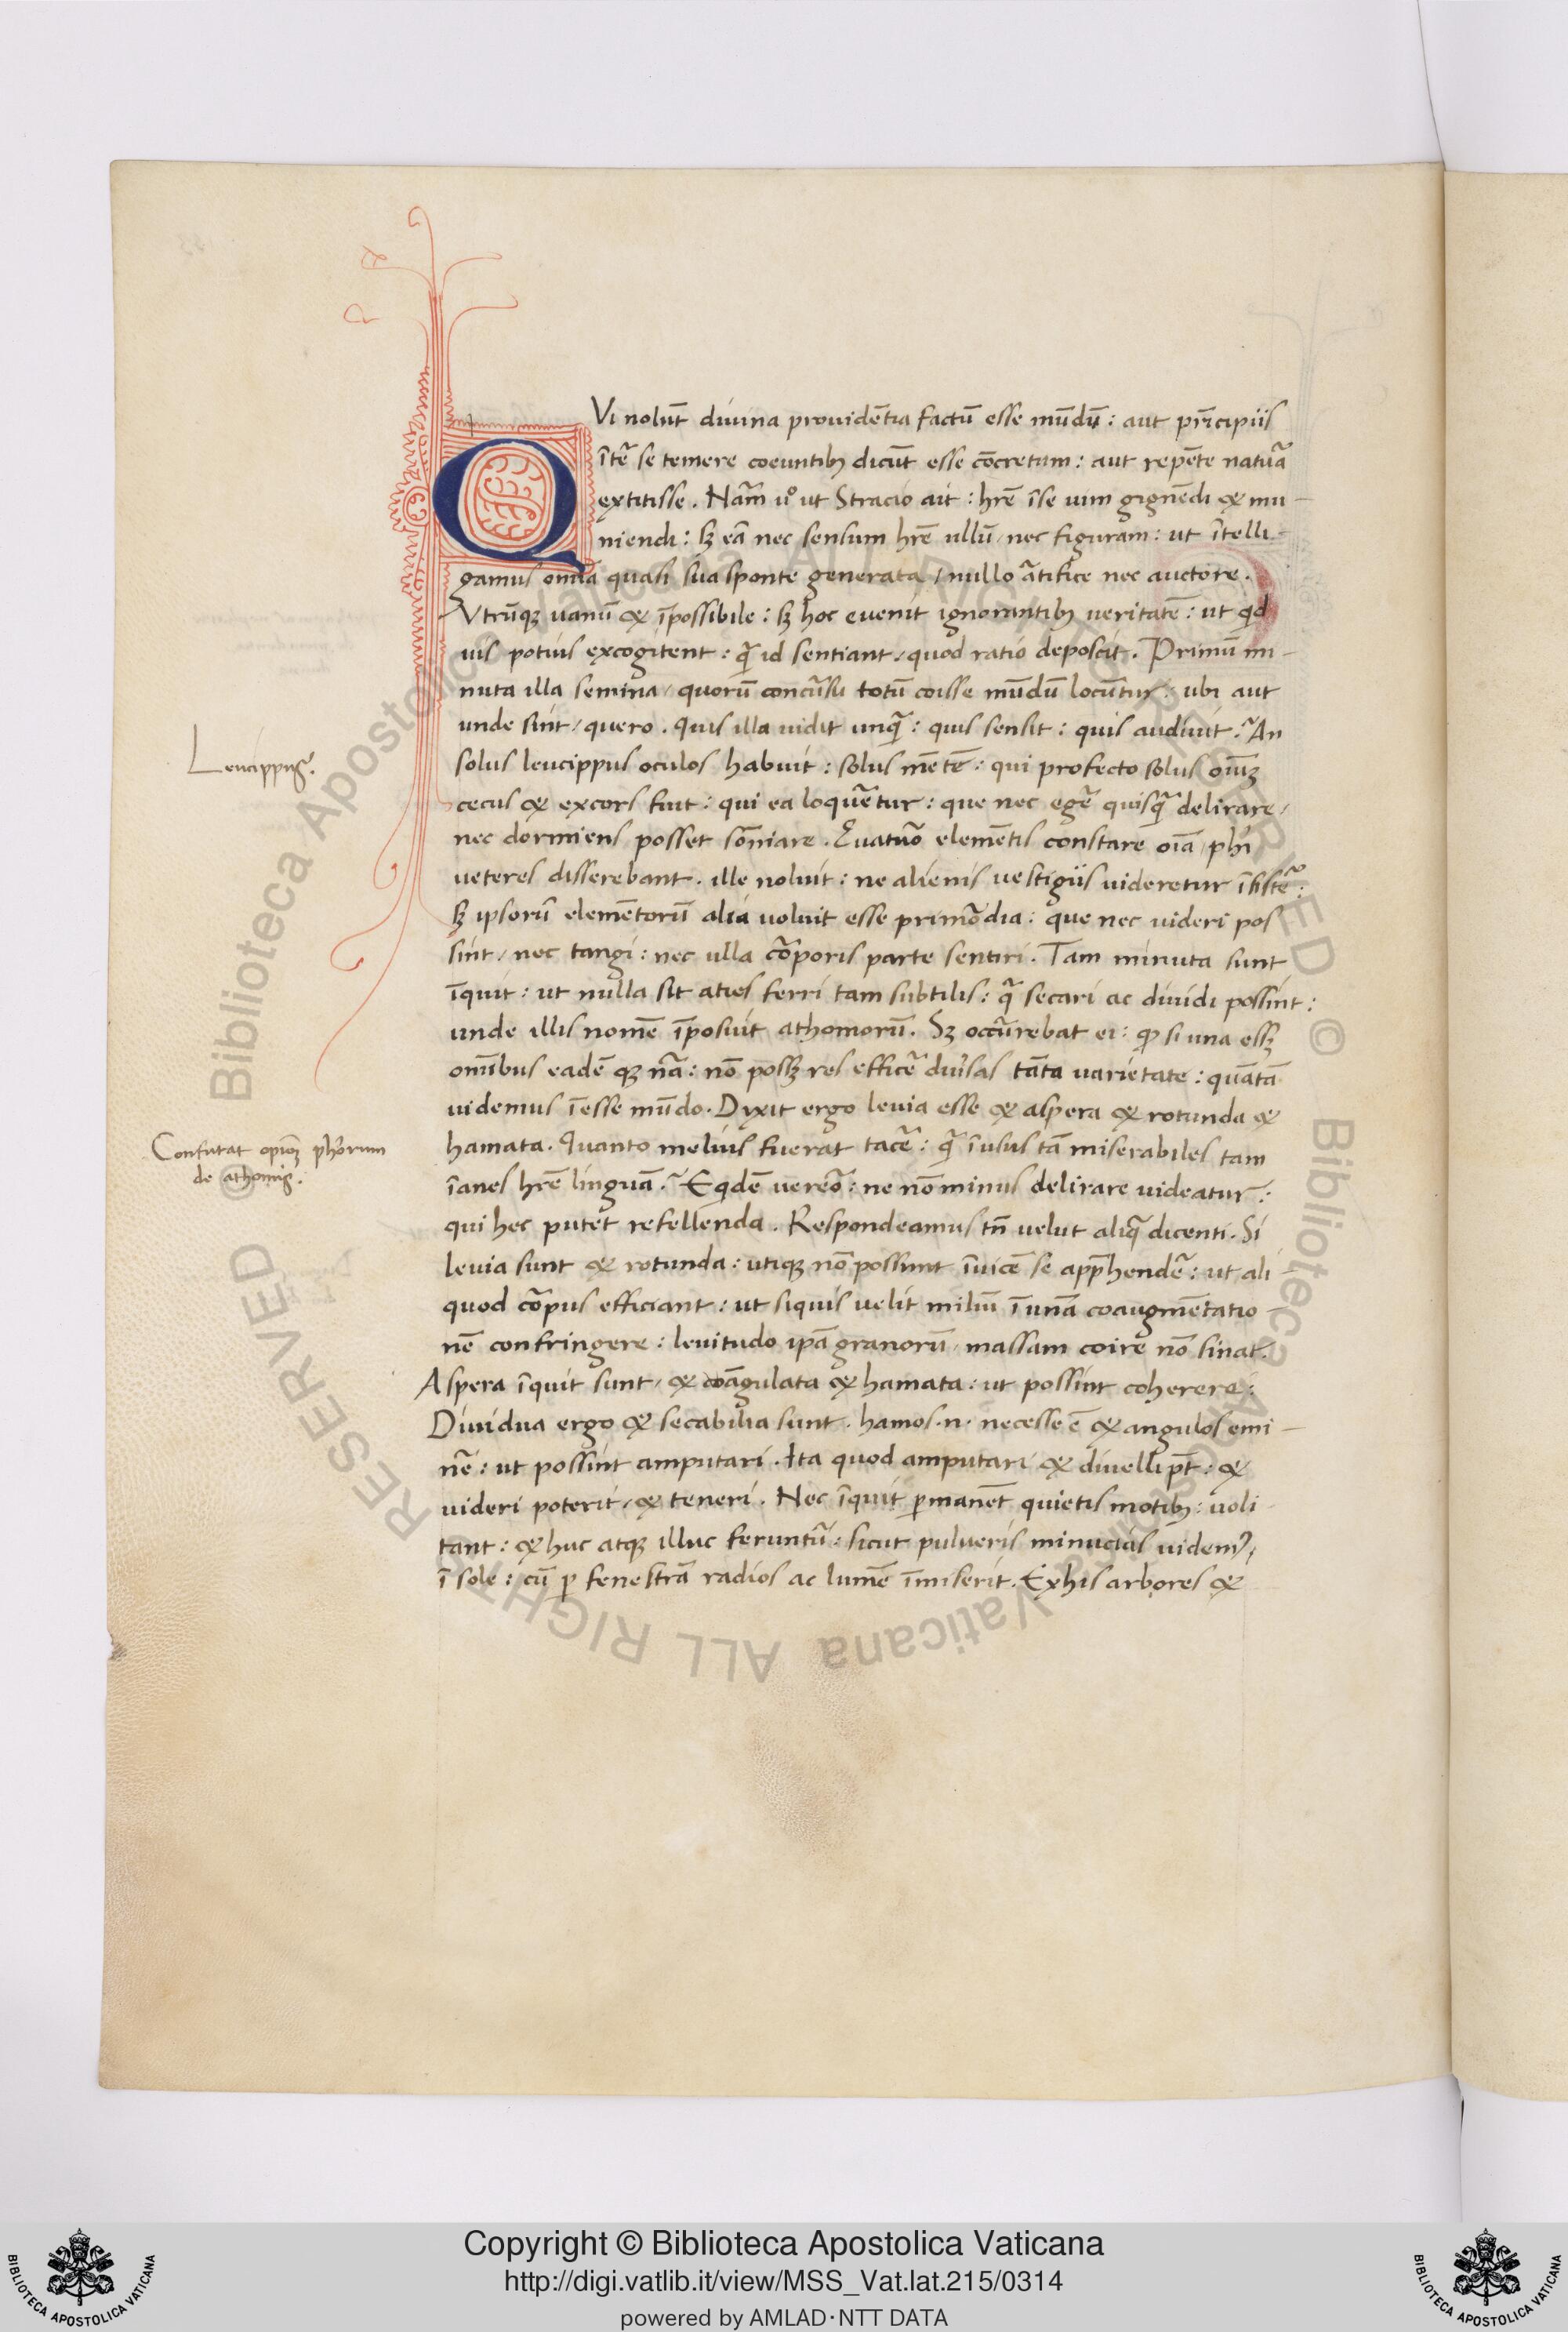 QVi nolūt divina providētia factū esse mūdū: aut pr̄icipiis
īt̄ se temere coeuntibꝫ dicūt esse cōcretum: aut repēte natūa
extitisse. Nāam uº ut Stracio ait: hr̄e īse uim gignēdi & mu-
niendi: sꝫ eā nec sensum hr̄e ullū, nec figuram: ut ītelli-
gamus omīa quasi sua sponte generata, nullo ātifice nec auctore.
Vtrūqꝫ vanū & īpossibile: sꝫ hoc evenit ignorantibꝫ veritatē: ut qd
uis potius excogitent: q̄ id sentiant, quod ratio deposcit. Primū mi-
nuta illa semina, quorū concūsu totū coisse mūdū locūtur: ubi aut
unde sint, quero. Quis illa vidit unq̄: quis sensit: quis audivit? An
solus leucippus oculos habvit: solus mētē: qui profecto solus oīuꝫ
cecus & excors fuit: qui ea loquētur: que nec egr̄ quisq̄ delirare,
nec dormiens posset sōniare. Quatuōr elemētis constare oīa, phī
veteres disserebant. ille nolvit: ne alienis vestigiis videretur īsistē:
sꝫ ipsorū elemētorū alia voluit esse primōdia: que nec videri pos
sint, nec tangi: nec ulla cōporis parte sentiri. Tam minuta sunt
īquit: ut nulla sit aties ferri tam subtilis: q̄ secari ac dividi possint:
unde illis nomē īposuit athomorū. Sꝫ occūrebat ei: ꝙ si una essꝫ
omībus eadē qꝫ nā: nō possꝫ res efficē dūsas tāta varietate: quātā
videmus īesse mūdo. Dixit ergo levia esse & aspera & rotunda &
hamata. Quanto melius fuerat tacē: q̄ īusus tā miserabiles tam
īanes hr̄e linguā? Eqdē vereōr: ne nō minus delirare videatur:
qui hec putet refellenda. Respondeamus tn̄ velut aliq̄ dicenti. Si
levia sunt & rotunda: utiqꝫ nō possunt īvicē se appr̄hendē: ut ali-
quod cōpus efficiant: ut siquis velit miliū ī unā coaugmētatio-
nē confringere: levitudo ip̄a granorū, massam coire nō sinat.
Aspera īquit sunt, & coāgulata & hamata: ut possint coherere:
Dividua ergo & secabilia sunt. hamos .n. necesse ē & angulos emi-
nē: ut possint amputari. Ita quod amputari & divelli pt̄: &
videri poterit, & teneri. Nec īquit ꝑmanēt quietis motibꝫ: voli
tant: & huc atqꝫ illuc feruntū: sicut pulveris minucias videmꝰ,
ī sole: cū ꝑ fenestrā radios ac lumē īmiserit. Ex his arbores &
Leucippꝰ.
Confutat opiōꝫ ph̄orum
de athomis.
Copyright © Biblioteca Apostolica Vaticana
http://digi.vatlib.it/view/MSS_Vat.lat.215/0314
powered by AMLAD·NTT DATA
BIBLIOTECA APOSTOLICA VATICANA
BIBLIOTECA APOSTOLICA VATICANA
© Biblioteca Apostolica Vaticana ALL RIGHTS RESERVED © Biblioteca Apostolica Vaticana ALL RIGHTS RESERVED